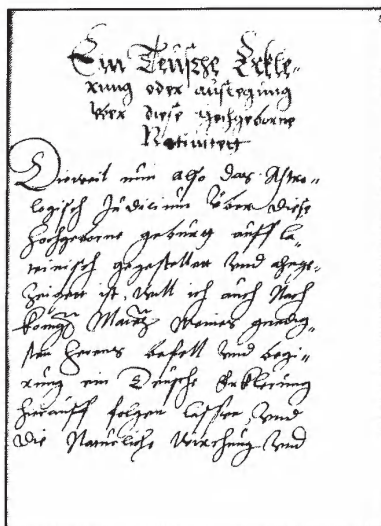 Ein Teusche Erkle-
rung oder auslegung
vber diese hochgeborne
Natiuitett
Dieweil nun also das Astro-
logisch Judicium vber diese
hochgeborne geburtt auff la-
teinisch gestellet vnd
ist, will ich auch Nach
Meines gnedig-
sten herrens befell vnd begi-
rung ein Deusche Erklerung
herauff folgen lassen, vnd
die Naturliche Wirchung vnd